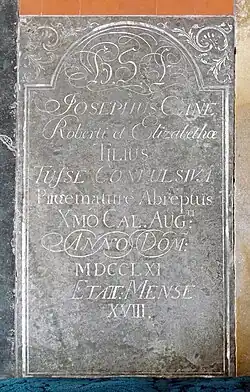 H S I
Josephus Cane
Roberti et Elizabethæ
Filius
Tusse Convulsiva
Præmature Abreptus
Xmo Cal. Augti
Anno Dom:
MDCCLXI
Etat: Mense
XVIII.